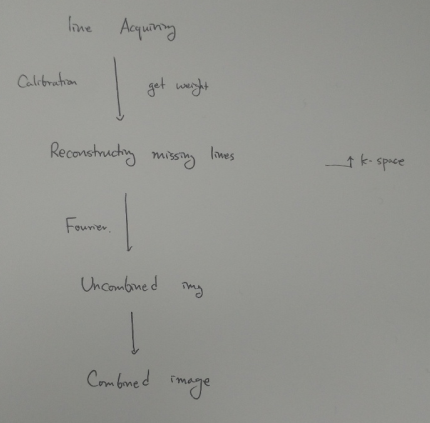 line Acquiring
Calibration get weight
Reconstructing missing lines
k-space
Fourier.
Uncombined img
Combined image